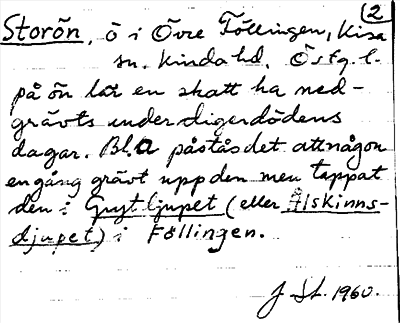 2
Storön, ö i Övre Föllingen, Kisa
sn. Kinda hd. Östg. l.
på ön lär en skatt ha ned-
grävts under digerdödens
dagar. Bl.a påstås det att någon
en gång grävt upp den men tappat
den i Grytljupet (eller Ålskinns-
djupet) i Föllingen.
J St. 1960.